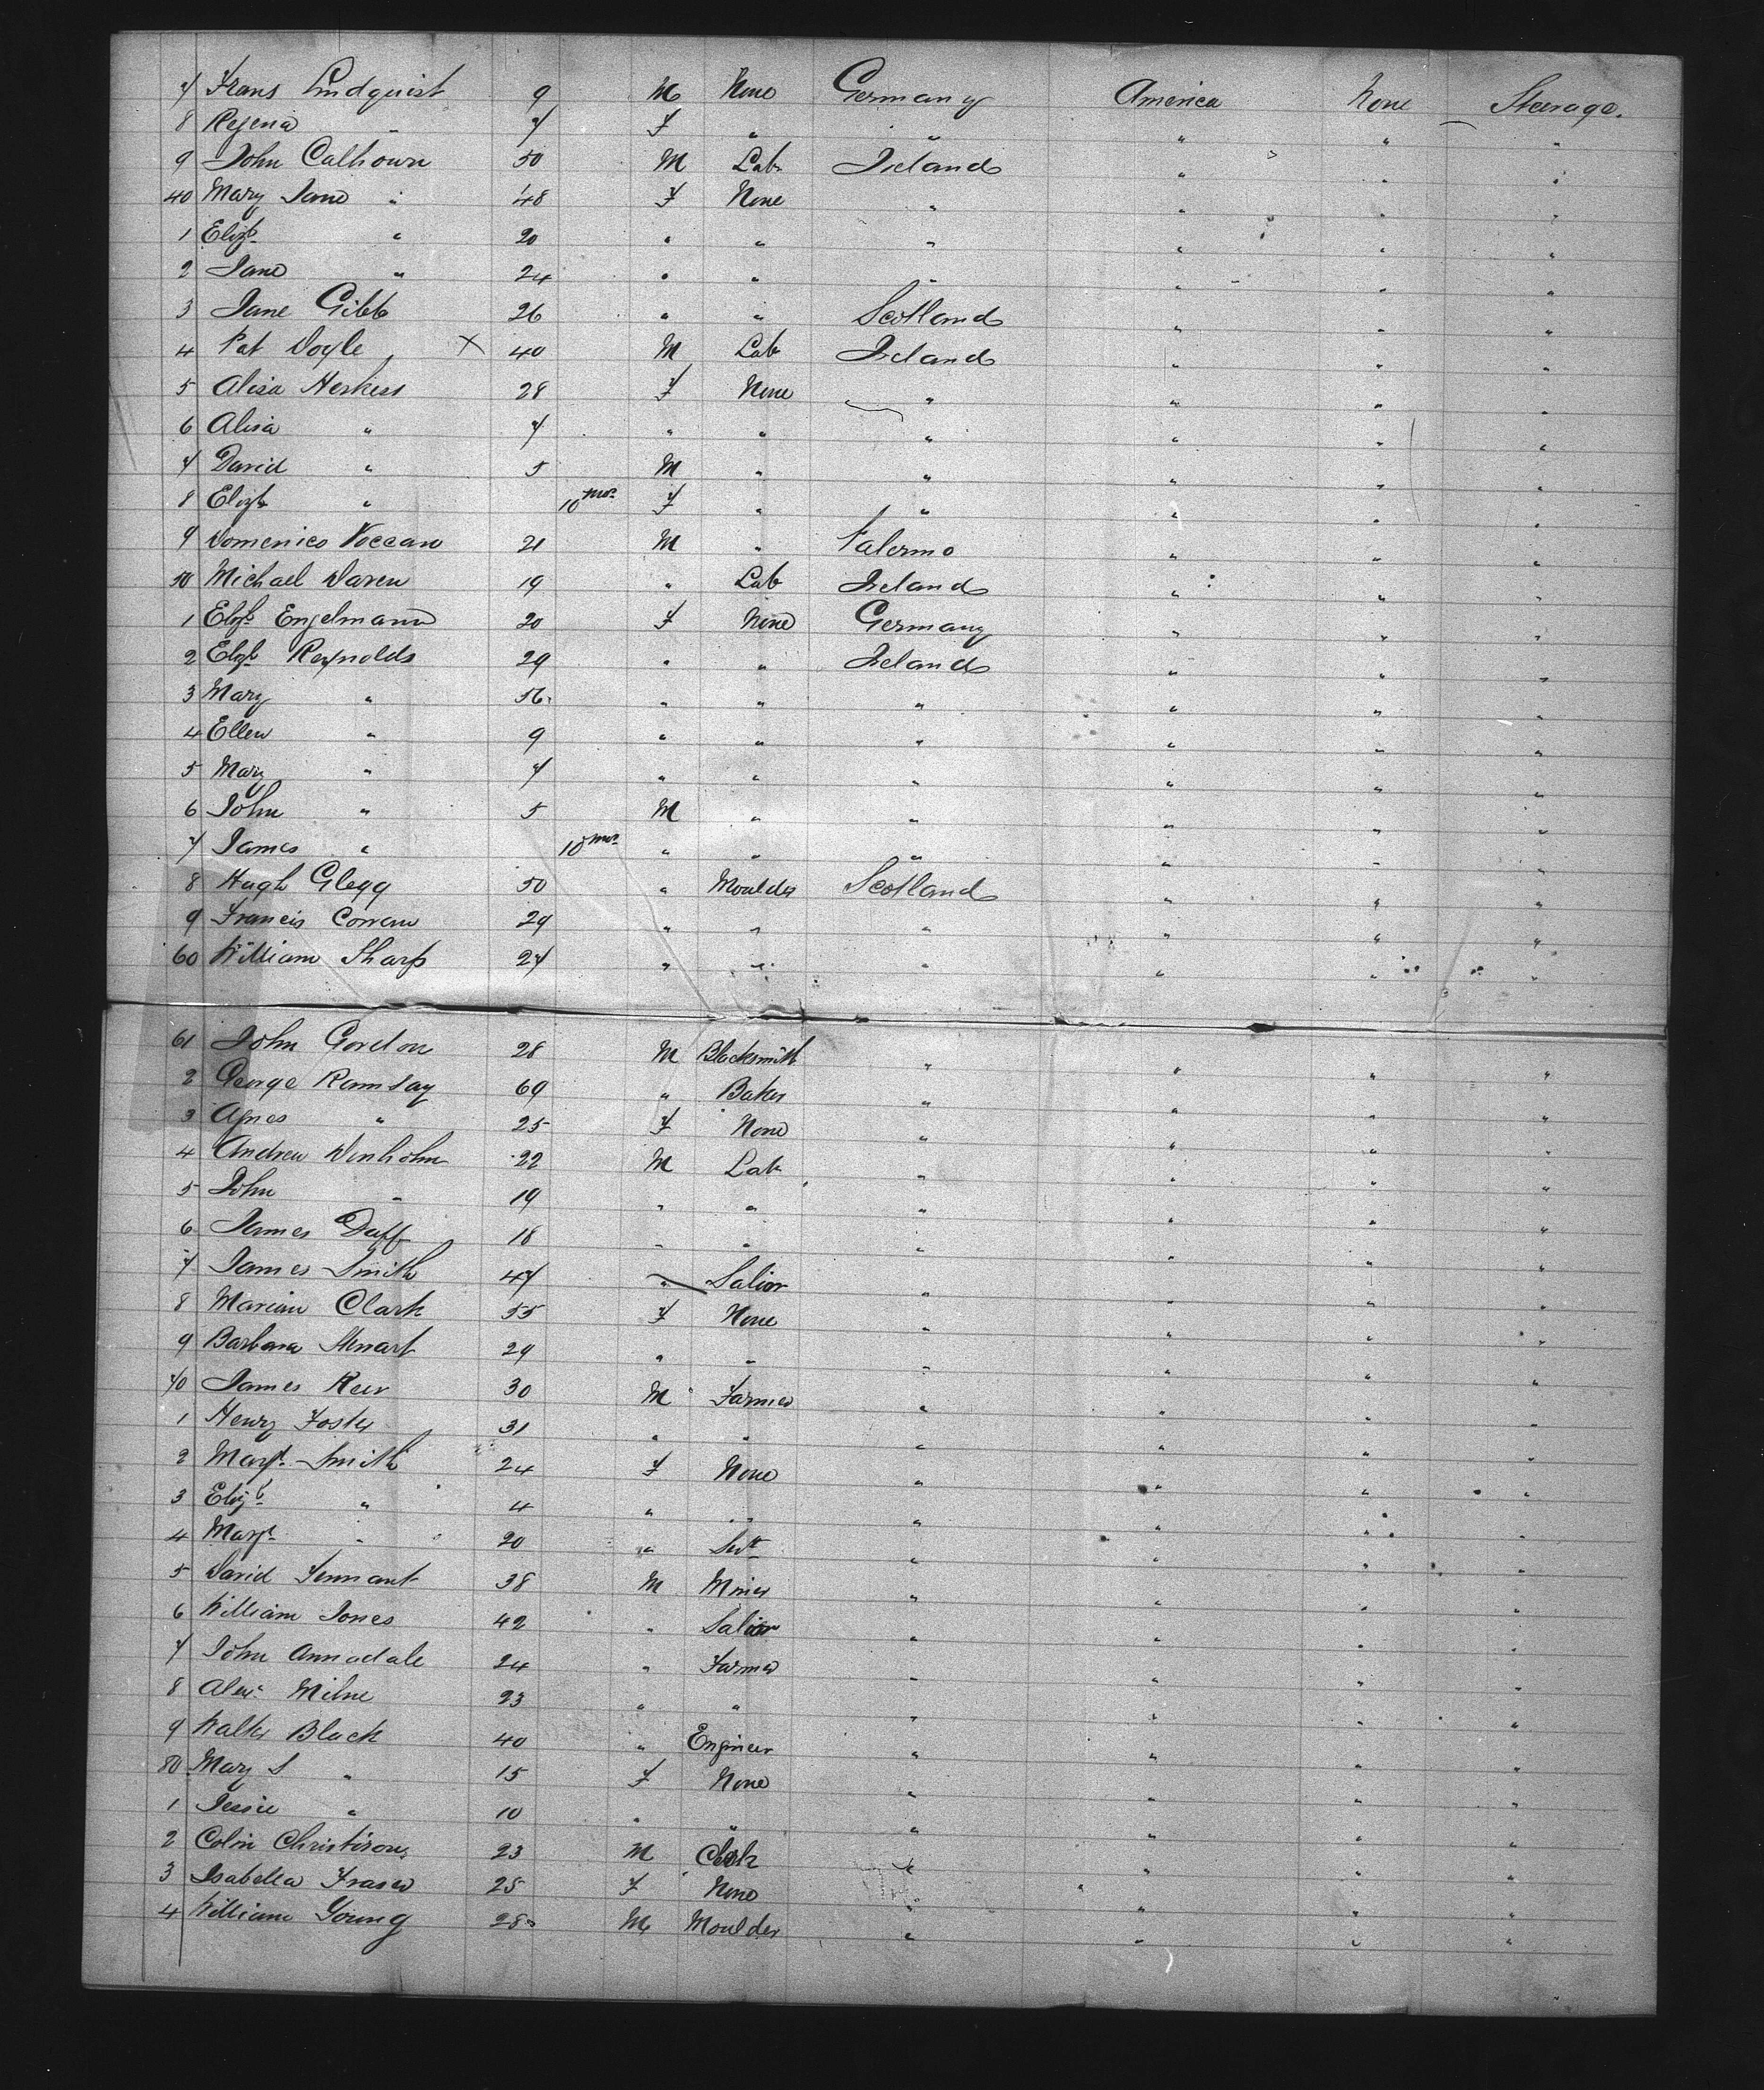 7 Frans Lindquist 9 M None Germany America None Steerage.
8 Regena " 7 F " " " " "
9 John Calhoun 50 M Lab Ireland " " "
40 Mary Jane " 48 F None " " " "
1 Elizb " 20 " " " " " "
2 Jane " 24 " " " " " "
3 Jane Gibb 26 " " Scotland " " "
4 Pat Doyle X 40 M Lab Ireland " " "
5 Alisa Herkess 28 F None " " " "
6 Alisa " 7 " " " " " "
7 David " 5 M " " " " "
8 Elizb " 10 mos F " " " " "
9 Domenico 21 M " Palermo " " "
50 Michael Daren 19 " Lab Ireland " " "
1 Elizb Engelmann 20 F None Germany " " "
2 Elizb Reynolds 29 " " Ireland " " "
3 Mary " 56 " " " " " "
4 Ellen " 9 " " " " " "
5 Mary " 7 " " " " " "
6 John " 5 M " " " " "
7 James " 10 mos " " " " " "
8 Hugh Clegg 50 " Moulder Scotland " " "
9 Francis 29 " " " " " "
60 William Sharp 27 " " " " " "
61 John Gordon 28 M Blacksmith " " " "
2 George Ramsay 69 " Baker " " " "
3 Agnes " 25 F None " " " "
4 Andrew 22 M Lab " " " "
5 John " 19 " " " " " "
6 James Duff 18 " " " " " "
7 James Smith 47 " Salior " " " "
8 Marian Clark 55 F None " " " "
9 Barbara Stewart 29 " " " " " "
70 James Keir 30 M Farmer " " " "
1 Henry Foster 31 " " " " " "
2 Margt Smith 24 F None " " " "
3 Elizb " 4 " " " " " "
4 Margt " 20 " Servt " " " "
5 David Tennant 38 M Miner " " " "
6 William Jones 42 " Salior " " " "
7 John Annadale 24 " Farmer " " " "
8 Alexr Milne 23 " " " " " "
9 Walter Black 40 " Engineer " " " "
80 Mary S " 15 F None " " " "
1 Jessie " 10 " " " " " "
2 Colin Christison 23 M Clerk " " " "
3 Isabella Fraser 25 F None " " " "
4 William Young 28 M Moulder " " " "